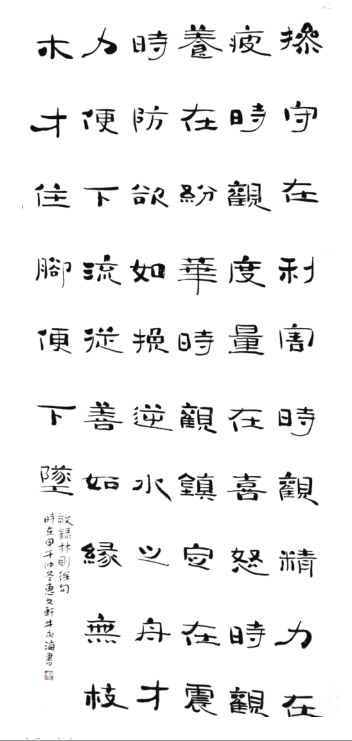 操守在利害時觀精力在
疲時觀度量在喜怒時觀
養在紛華時觀鎮定在震
時防欲如挽逆水之舟才
力便下流從善如緣無枝
木才住腳便下墜
敬録林則徐句
時在甲午仲冬惠文軒牛永海書